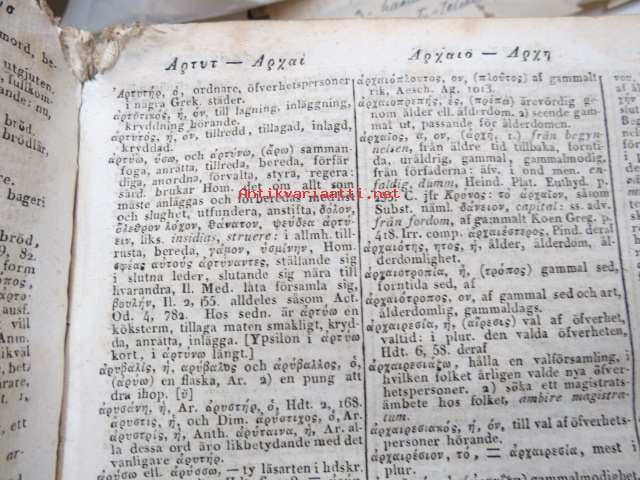 Αρτυτ — Αρχαί
Ἀρτυτήρ, ὁ, ordnare, öfverhetspersoner
i några Grek. städer.
ἀρτυτικὸς, ή, όν, till lagning, inläggning,
kryddning hörande.
ἀρτυτὸς, ή, όν, tillredd, tillagad, inlagd,
kryddad.
ἀρτύω, ύσω, och ἀρτύνω, (ἄρω) samman-
foga, anrätta, tillreda, bereda, förfär
diga, anordna, förvalta, styra, regera:
särd. brukar Hom. det om allt som
måste anläggas och
och slughet, utfundera, anstifta, δόλον,
ὄλεθρον λόχον, θάνατον, ψεύδεα ἀρτύ-
ειν, liks. insidias, struere: i allmh. till-
rusta, bereda, γάμον, ὑσμίνην, Hom.
σφέας αὐτοὺς ἀρτύναντες, ställande sig
i slutna leder, slutande sig nära till
hvarandra, Il. Med. låta församla sig,
βουλήν, Il. 2, 55. alldeles såsom Act.
Od. 4, 782. Hos sedn. är ἀρτύω en
köksterm, tillaga maten smakligt, kryd-
da, anrätta, inlägga. [Ypsilon i ἀρτύω
kort, i ἀρτύνω långt.]
ἀρυβαλίς, ή, ἀρύβαλος och ἀρύβαλλος, ὁ,
(ἀρύω) en flaska, Ar. 2) en pung att
dra ihop. [ῠ]
ἀρυσάνη, ἡ, Ar. ἀρυστήρ, ὁ, Hdt. 2, 168.
ἄρυστις, ἡ, och Dim. ἀρύστιχος, ὁ, Ar.
ἀρυστρίς, ἡ, Anth. ἀρύταινα, ἡ, Ar. al-
la dessa ord äro likbetydande med det
vanligare ἀρυτήρ.
ἀρύσω ell. ἀρύσσω, — ty läsarten i hdskr.
Αρχαιο — Αρχη
ἀρχαιόπλουτος, ον, (πλοῦτος) af gammalt
rik, Aesch. Ag. 1013.
ἀρχαιοπρεπής, ές, (πρέπω) ärevördig ge-
nom ålder ell. ålderdom. 2) seende gam-
mal ut, passande för ålderdomen.
ἀρχαῖος, α, ον, (ἀρχή, 1.) från begyn-
nelsen, från äldre tid tillbaka, fornti-
da, uråldrig, gammal, gammalmodig,
från förfäderna: äfv. i ond men. en-
faldig, dumm, Heind. Plat. Euthyd. p.
C. jfr Κρονος: τὸ ἀρχαῖον, såsom
Subst. näml. δάνειον, capital: ss. adv.
från fordom, af gammalt Koen Greg. p.
418. Irr. comp. ἀρχαιέστερος, Pind. deraf
ἀρχαιότης, ητος, ἡ, ålder, ålderdom, ål-
derdomlighet.
ἀρχαιοτροπία, ἡ, (τρόπος) gammal sed,
forntida sed, af
ἀρχαιότροπος, ον, af gammal sed och art,
ålderdomlig, gammaldags.
ἀρχαιρεσία, ἡ, (αἵρεσις) val af öfverhet,
valtid: i plur. den valda öfverheten,
Hdt. 6, 58. deraf
ἀρχαιρεσιάζω, hålla en valförsamling, i
hvilken folket årligen valde nya öfver-
hetspersoner. 2) söka ett magistrats-
ämbete hos folket, ambire magistra-
tum.
ἀρχαιρεσιακός, ή, όν, till val af öfverhets-
personer hörande.
ἀρχαιρέσιον, τό, = ἀρχαιρεσία, mest i
plur.
gammalmodighet
mord, be-
utgjuten.
bröd.
brödlår,
bageri
bröd,
9, 82.
form
ausf.
vill
Anm.
likväl
Antikvariaatti.net